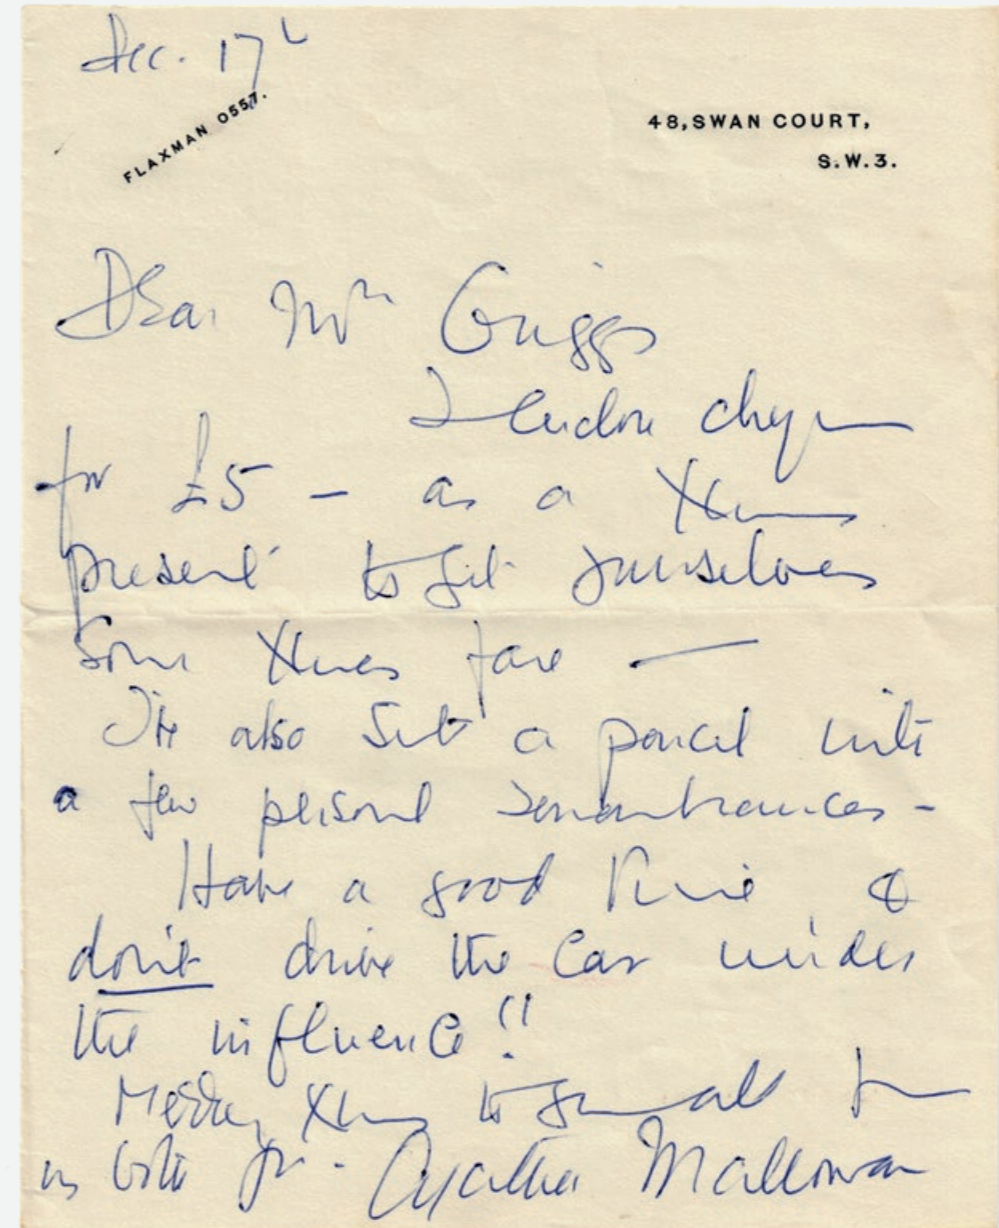 Dec. 17th
FLAXMAN 0557.
48, SWAN COURT,
S.W.3.
Dear Mrs Griggs
I enclose cheque
for £5 – as a Xmas
present to get yourselves
some Xmas fare —
I've also sent a parcel with
a few personal remembrances –
Have a good time &
don't drive the car under
the influence!!
Merry Xmas to you all from
us both
Agatha Mallowan